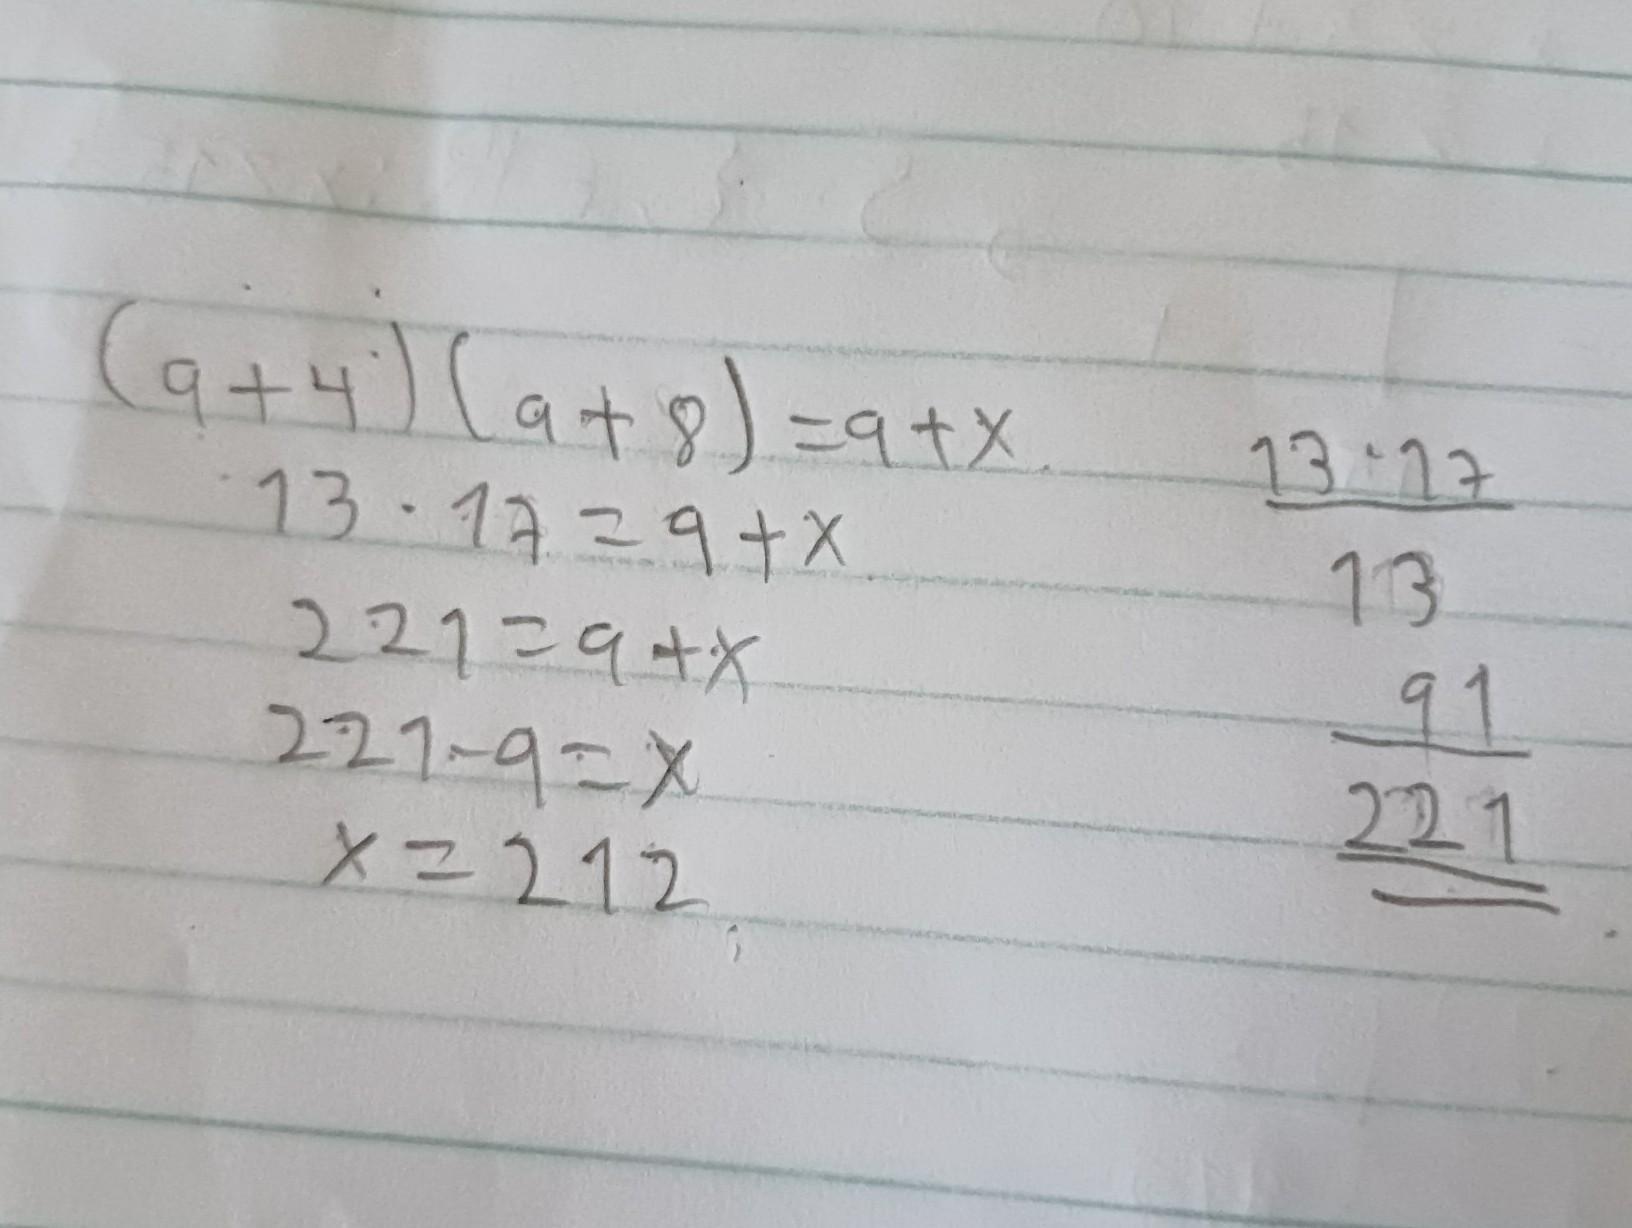 (9+4)(9+8)=9+x
13·17=9+x
221=9+x
221-9=x
x=212
13·17
13
91
221